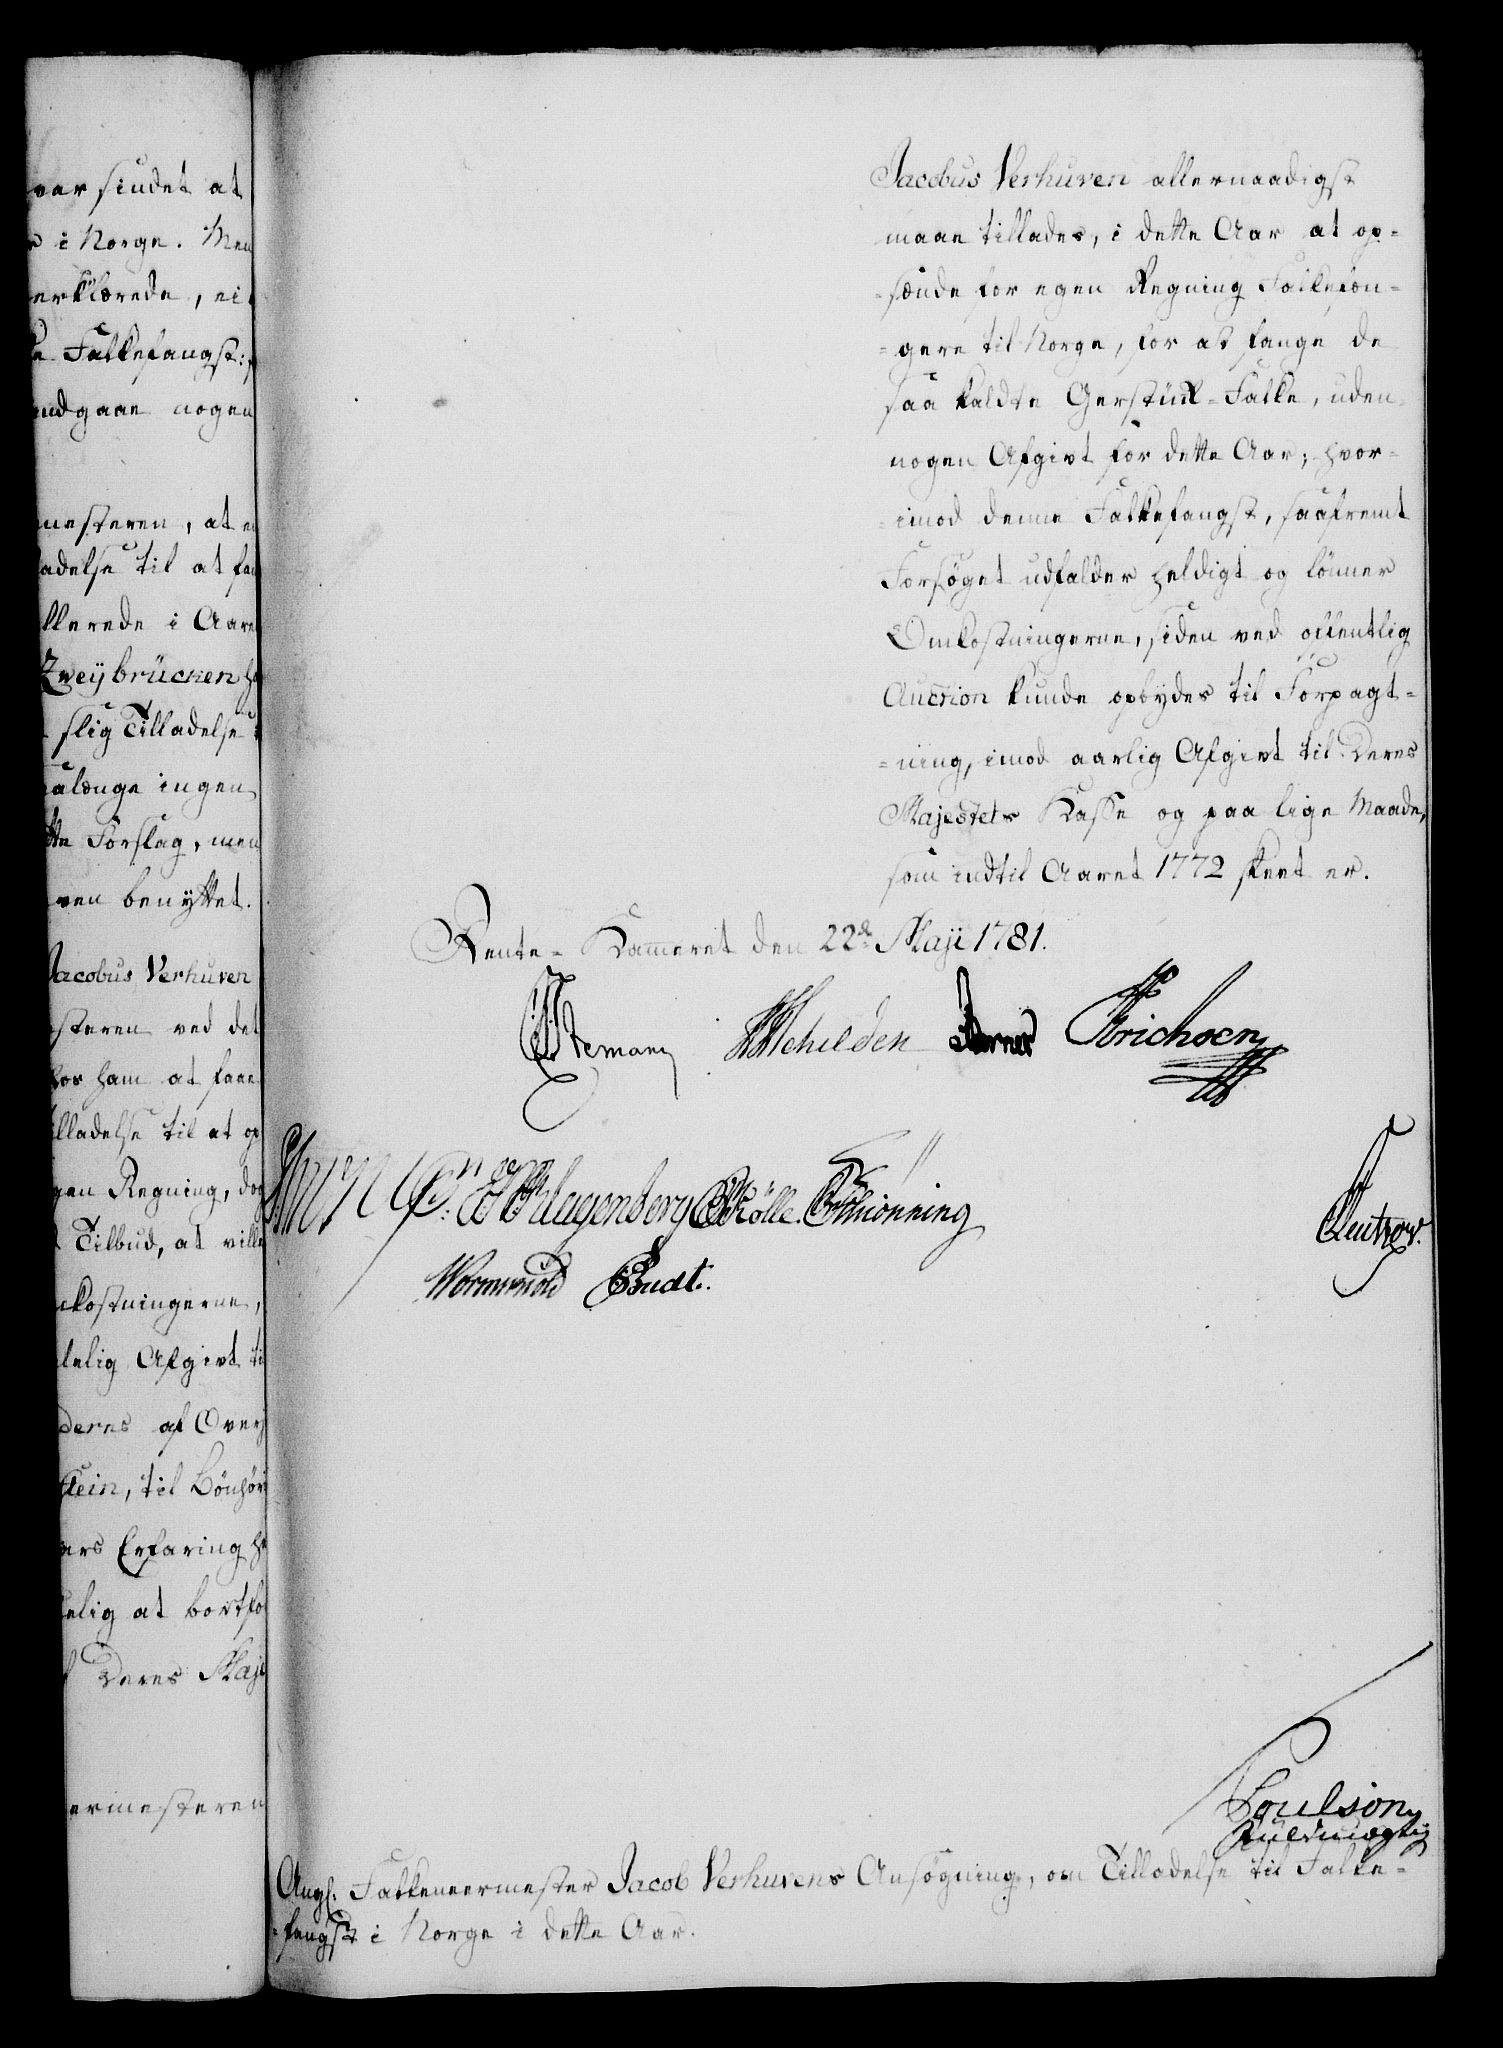 var sindet at
i Norge. Men
erklærede, ei
Falkefangst:
indgaae nogen
mesteren, at
ladelse til at
llerede i Aare
Zweybrücken
slig Tilladelse
alænge ingen
Forslag, men
ven benyttet.
Jacobus Verhuven
steren ved det
hos ham at faae
illadelse til at op
gen Regning, dog
Tilbud, at ville
kostningerne,
delig Afgivt
deres af Over
stein, til Bönhör
ers Erfaring
elig at bortfo
Deres Maje
ermesteren
Jacobus Verhuven allernaadigst
maae tillades, i dette Aar at op-
-sende for egen Regning Falkefæn-
-gere til Norge, for at fange de
saa kaldte Gerstük-Falke, uden
nogen Afgivt for dette Aar; hvor-
-imod denne Falkefangst, saafremt
Forsöget udfalder heldigt og lönner
Omkostningerne, siden ved offentlig
Auction kunde opbydes til Forpagt-
-ning, imod aarlig Afgivt til Deres
Majestets Kasse og paa lige Maade,
som indtil Aaret 1772 skeet er.
Rente-Kammeret den 22de Maji 1781.
Stemann Schilden Erichsen
Klagenberg Rölle. Schiönning
Wormskiold Budtz.
Leutzow.
Poulson
Fuldmægtig
Angl. Falkeneermester Jacob Verhuvens Ansögning, om Tilladelse til Falke-
-fangst i Norge i dette Aar.